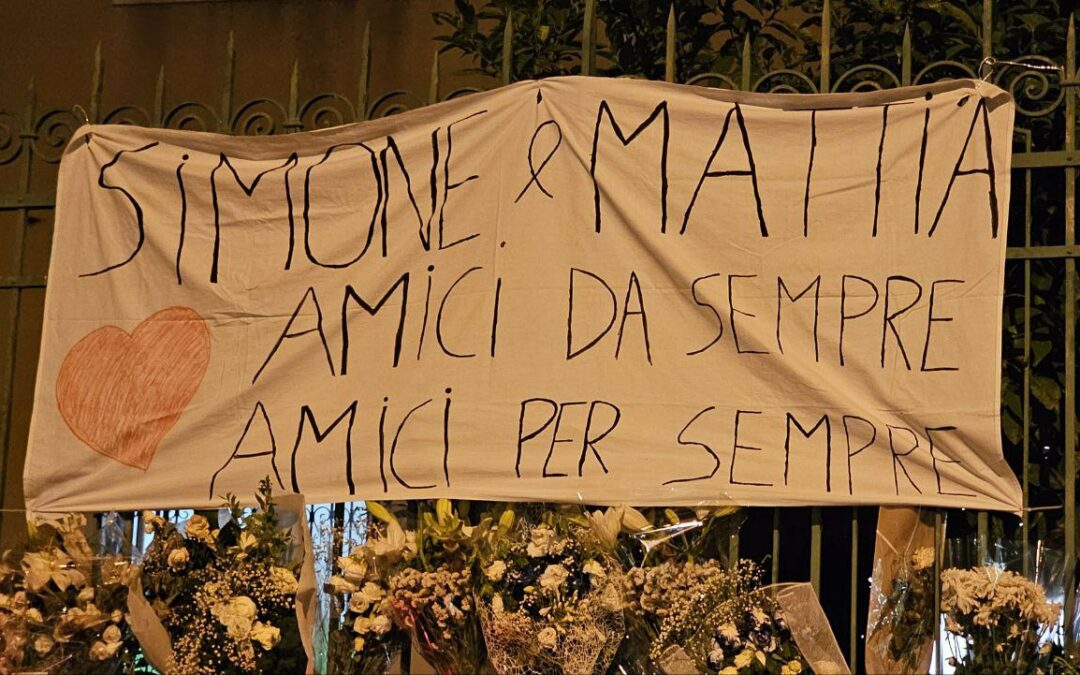 SiMONE & MATTiA
AMiCi DA SEMPRE
AMiCi PER SEMPRE